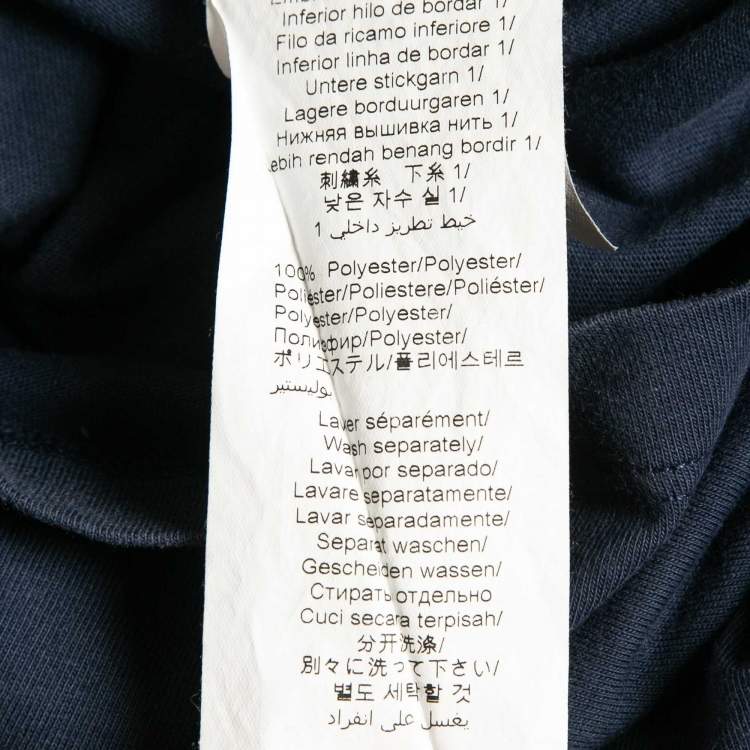 Inferior hilo de bordar 1/
Filo da ricamo inferiore 1/
Inferior linha de bordar 1/
Untere stickgarn 1/
Lagere borduurgaren 1/
Нижняя вышивка нить 1/
Lebih rendah benang bordir 1/
刺繍糸 下糸 1/
낮은 자수 실 1/
خيط تطريز داخلي 1
100% Polyester/Polyester/
Poliéster/Poliestere/Poliéster/
Polyester/Polyester/
Полиэфир/Polyester/
ポリエステル/폴리에스테르
بوليستير
Laver séparément/
Wash separately/
Lavar por separado/
Lavare separatamente/
Lavar separadamente/
Separat waschen/
Gescheiden wassen/
Стирать отдельно
Cuci secara terpisah/
分开洗涤/
別々に洗って下さい/
별도 세탁할 것
يغسل على انفراد